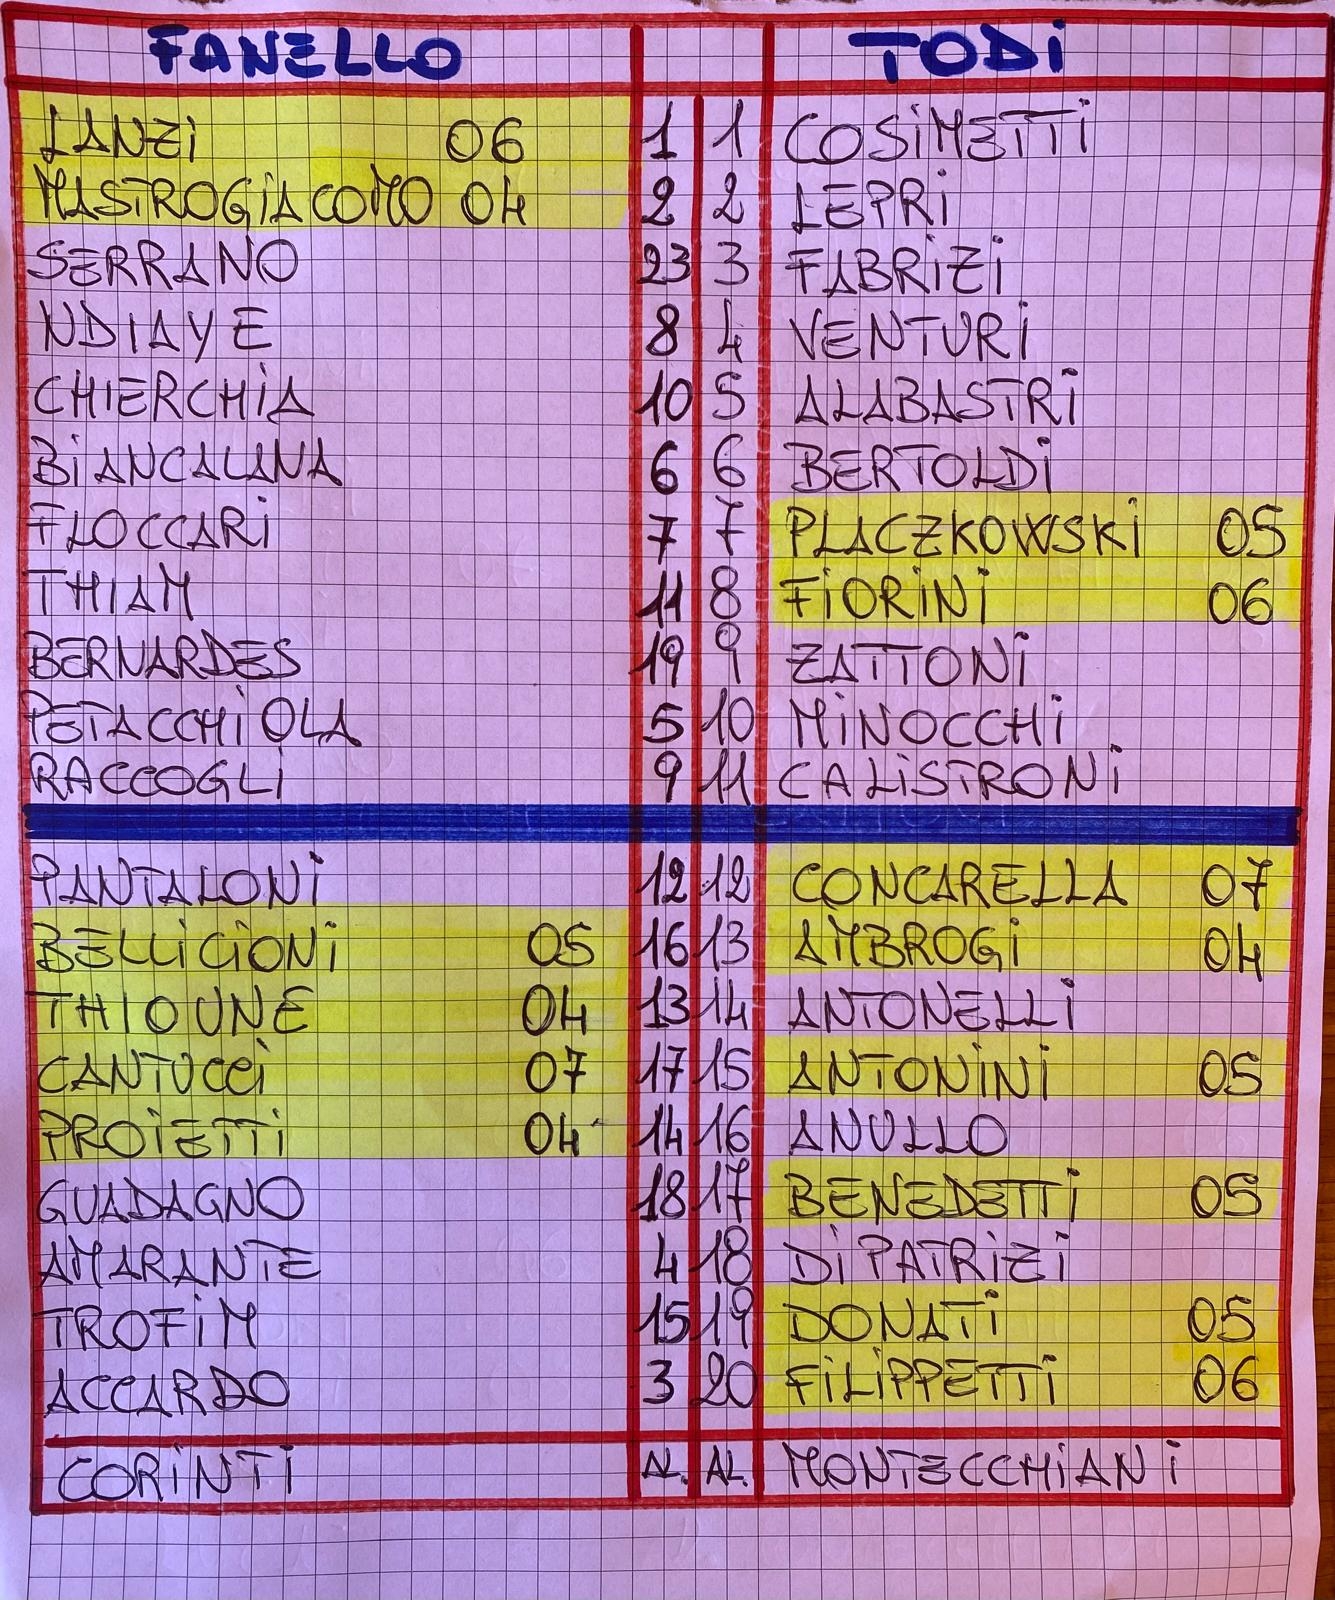 FANELLO TODI
LANZI 06 1 1 COSIMETTI
MASTROGIACOMO 04 2 2 LEPRI
SERRANO 23 3 FABRIZI
NDIAYE 8 4 VENTURI
CHIERCHIA 10 5 ALABASTRI
BIANCALANA 6 6 BERTOLDI
FLOCCARI 7 7 PLACZKOWSKI 05
THIAM 11 8 FIORINI 06
BERNARDES 19 9 ZATTONI
PETACCHIOLA 5 10 MINOCCHI
RACCOGLI 9 11 CALISTRONI
PANTALONI 12 12 CONCARELLA 07
BELLICIONI 05 16 13 AMBROGI 04
THIOUNE 04 13 14 ANTONELLI
CANTUCCI 07 17 15 ANTONINI 05
PROIETTI 04 14 16 ANULLO
GUADAGNO 18 17 BENEDETTI 05
AMARANTE 4 18 DI PATRIZI
TROFIM 15 19 DONATI 05
ACCARDO 3 20 FILIPPETTI 06
CORINTI AL. AL. MONTECCHIANI